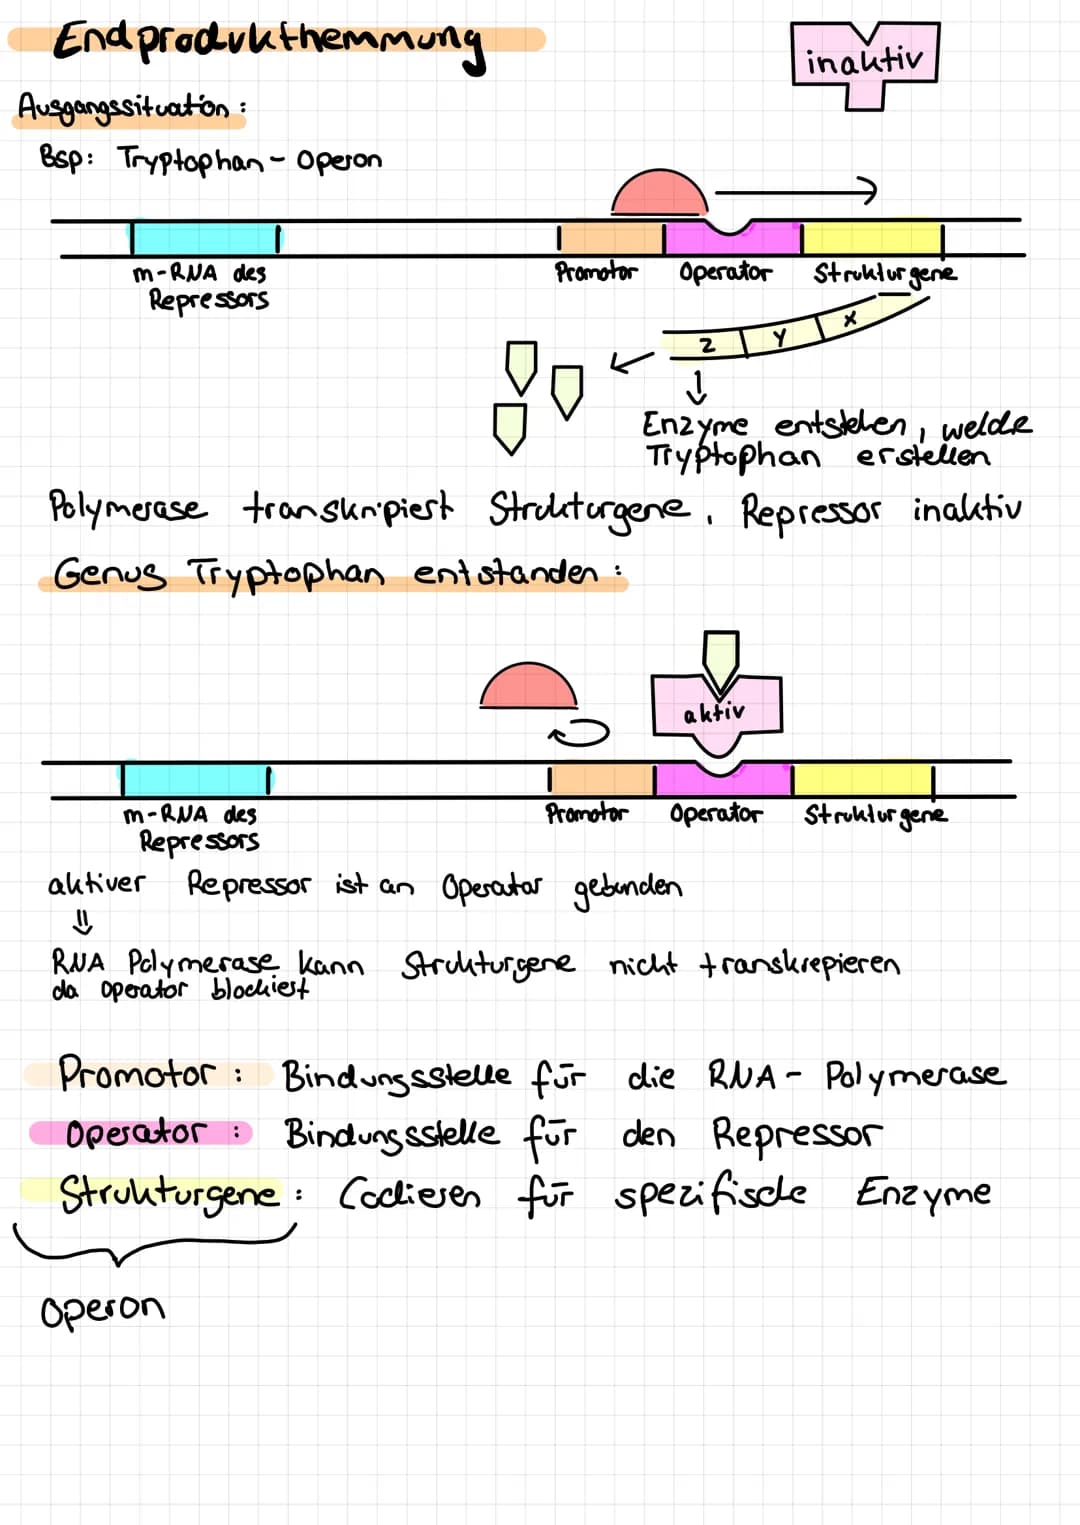 Endprodukthemmung
inaktiv
Ausgangssituation:
Bsp: Tryptophan - Operon
m-RNA des
Repressors
Promotor
Operator
Strukturgene
Z Y X
Enzyme entstehen, welche
Tryptophan erstellen
Polymerase transkripiert Strukturgene, Repressor inaktiv
Genug Tryptophan entstanden:
aktiv
m-RNA des
Repressors
Promotor
Operator
Strukturgene
aktiver Repressor ist an Operator gebunden
⇓
RNA Polymerase kann Strukturgene nicht transkrepieren
da Operator blockiert
Promotor: Bindungsstelle für die RNA - Polymerase
Operator: Bindungsstelle für den Repressor
Strukturgene: Codieren für spezifische Enzyme
Operon